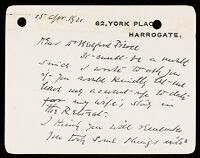 15 Apr. 1921
62, YORK PLACE
HARROGATE.
Dear Dr Bedford Pierce
It must be a month
since I wrote to ask you
if you would kindly let me
have my account up to date
for my wife's stay in
The Retreat.
I think you will remember
you very some things